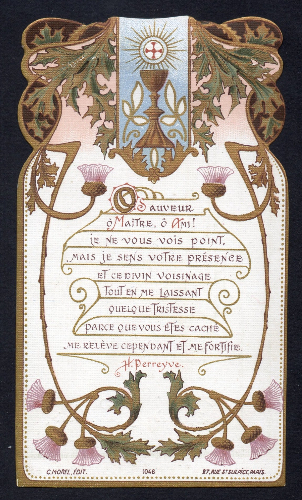 Ô SAUVEUR
Ô MAÎTRE, Ô AMI!
JE NE VOUS VOIS POINT,
MAIS JE SENS VOTRE PRÉSENCE
ET CE DIVIN VOISINAGE
TOUT EN ME LAISSANT
QUELQUE TRISTESSE
PARCE QUE VOUS ÊTES CACHÉ
ME RELÈVE CEPENDANT ET ME FORTIFIE.
H. Perreyve.
C. MOREL, ÉDIT. 1046 27, RUE ST SULPICE, PARIS.